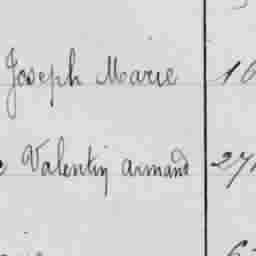 Joseph Marie 16
Valentin Armand 27